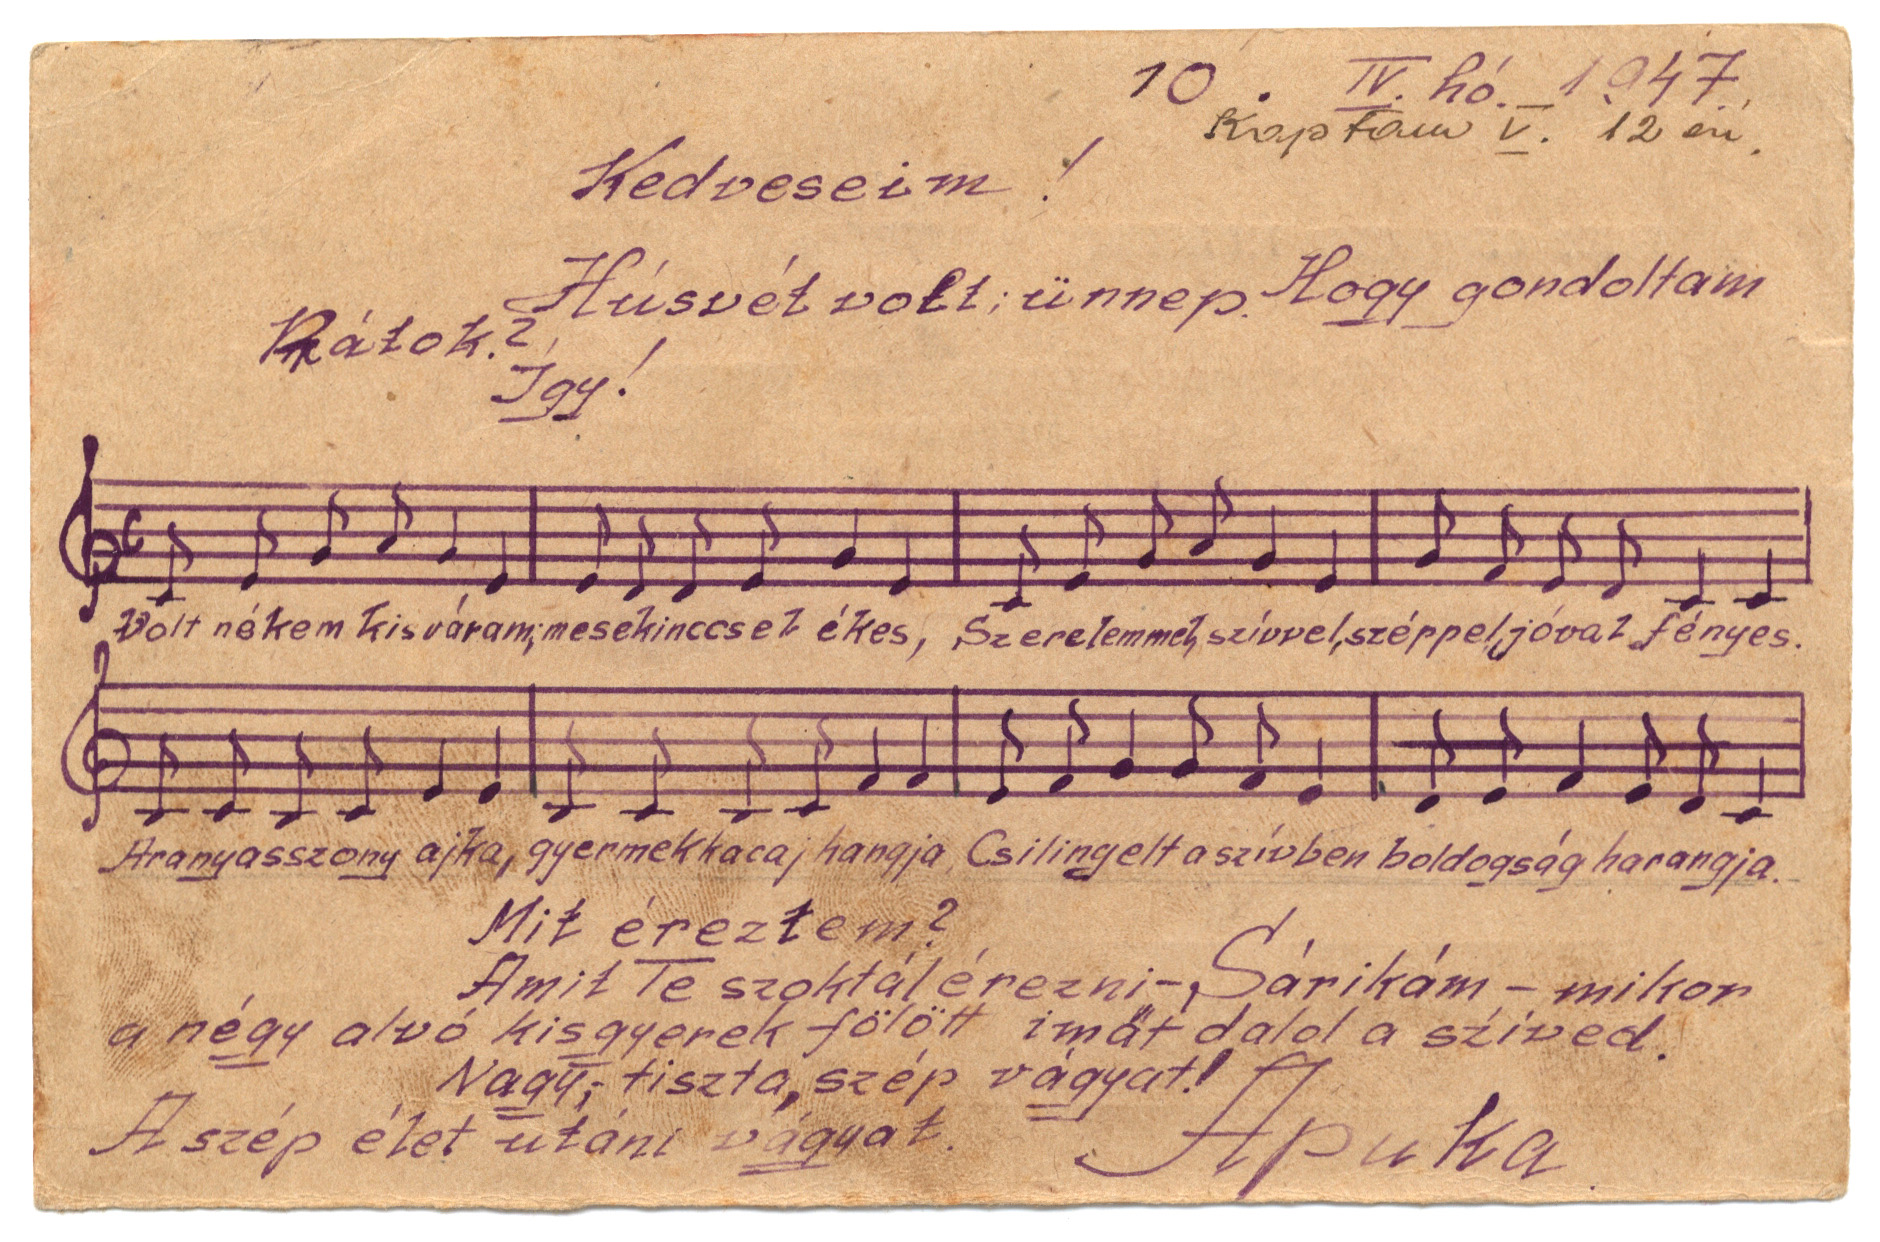 10. IV. hó. 1947.
Kaptam V. 12 én.
Kedveseim!
Húsvét volt; ünnep. Hogy gondoltam
Rátok.?
Így!
Volt nékem kisváram; mesekinccsel ékes, Szerelemmel, szívvel, széppel, jóval fényes.
Aranyasszony ajka, gyermekkacaj hangja Csilingelt a szívben boldogság harangja.
Mit éreztem?
Amit Te szoktál érezni-, Sárikám - mikor
a négy alvó kisgyerek fölött imát dalol a szíved.
Nagy, tiszta, szép vágyat!
A szép élet utáni vágyat.
Apuka